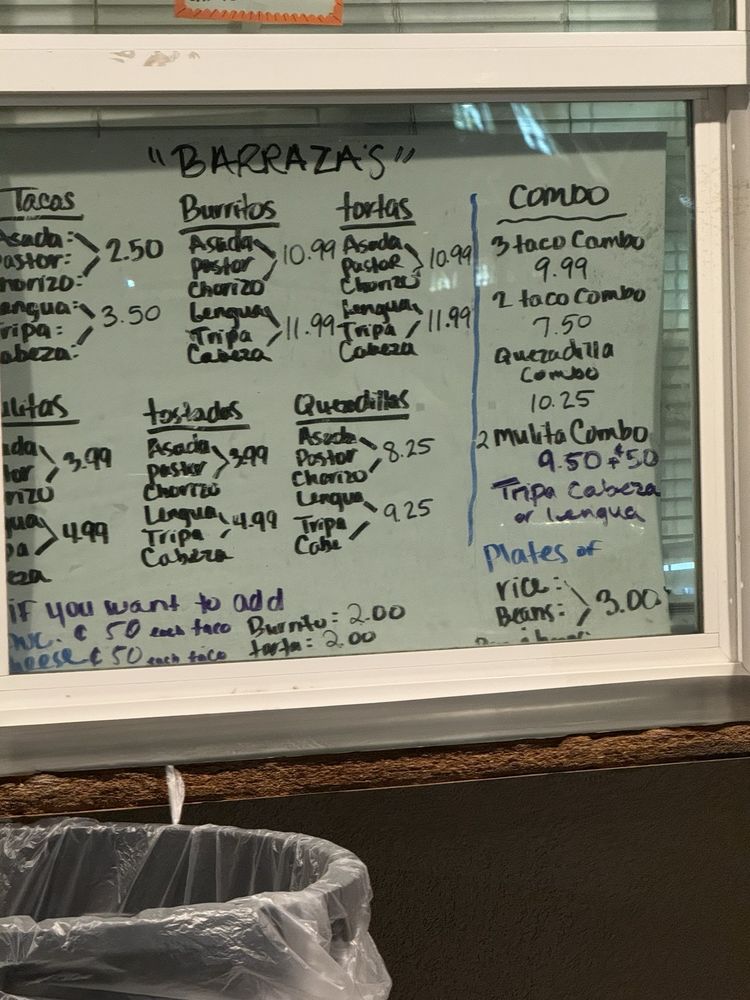 "BARRAZA'S"
Tacos
Asada:
Pastor:
Chorizo:
2.50
Lengua:
Tripa:
Cabeza:
3.50
Burritos
Asada
Pastor
Chorizo
10.99
Lengua
Tripa
Cabeza
11.99
tortas
Asada
Pastor
Chorizo
10.99
Lengua
Tripa
Cabeza
11.99
ulitas
ada
tor
rizo
3.99
gua
pa
eza
4.99
tostados
Asada
Pastor
Chorizo
3.99
Lengua
Tripa
Cabeza
4.99
Quesadillas
Asada
Pastor
Chorizo
8.25
Lengua
Tripa
Cabe
9.25
Combo
3 taco Combo
9.99
2 taco Combo
7.50
Quezadilla
Combo
10.25
2 Mulita Combo
9.50 + ¢50
Tripa Cabeza
or Lengua
Plates of
rice:
Beans:
3.00
if you want to add
¢ 50 each taco
heese ¢ 50 each taco
Burrito: 2.00
torta: 2.00